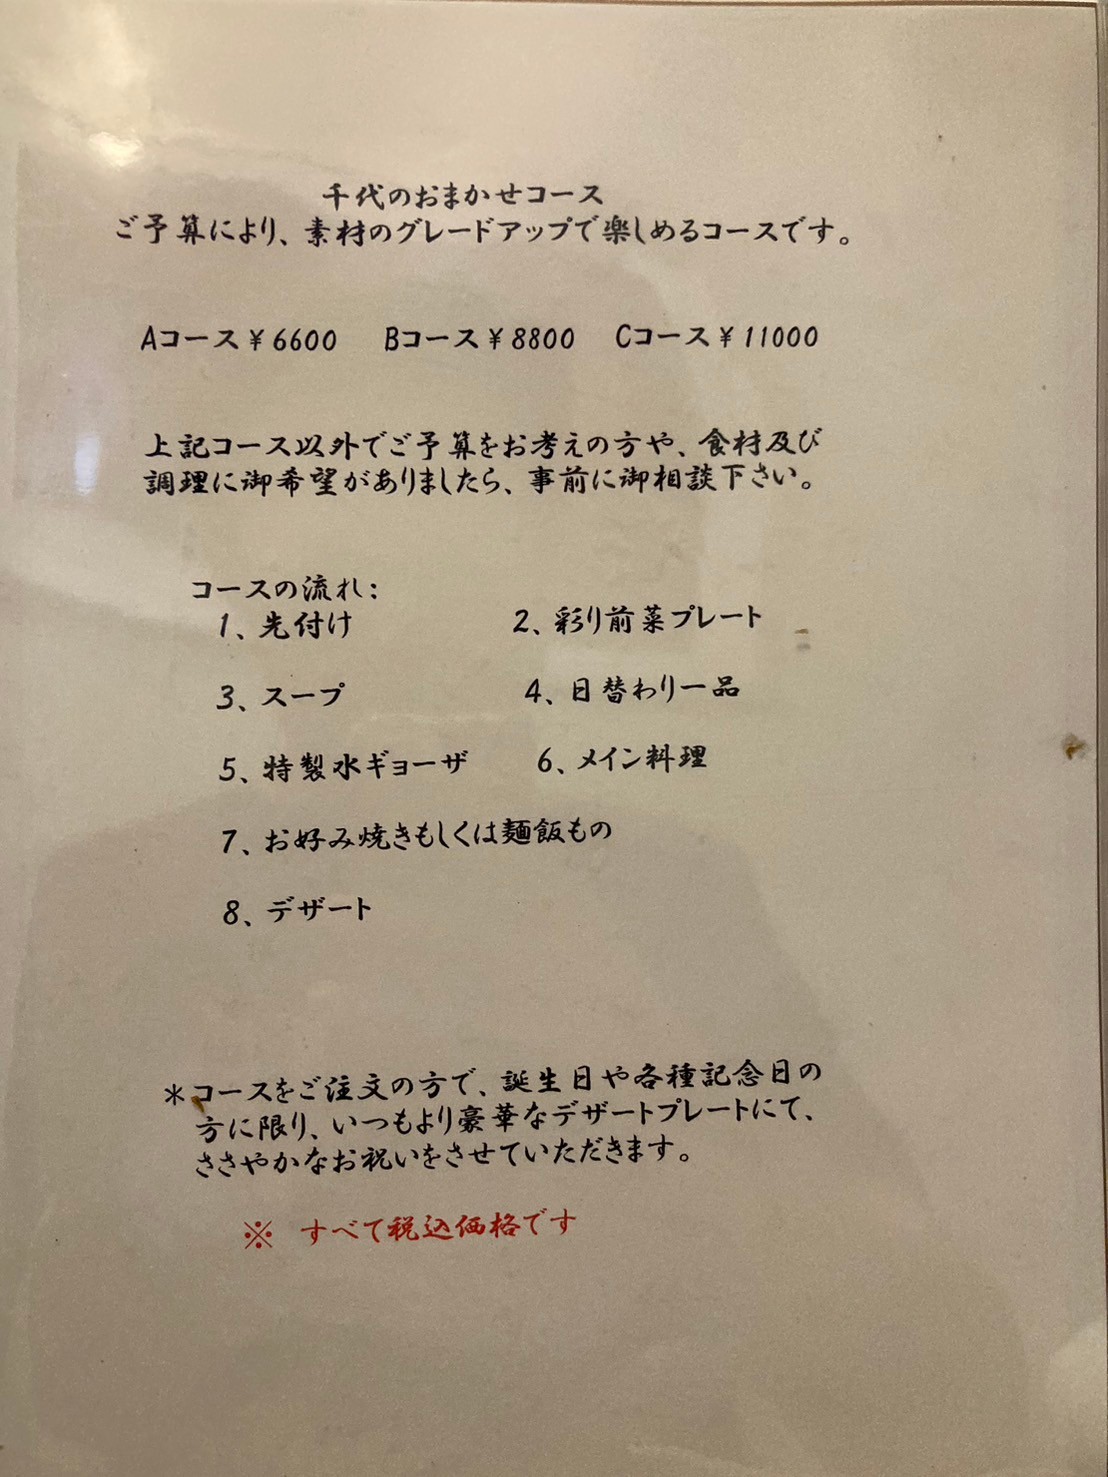 千代のおまかせコース
ご予算により、素材のグレードアップで楽しめるコースです。
Aコース￥6600 Bコース￥8800 Cコース￥11000
上記コース以外でご予算をお考えの方や、食材及び
調理に御希望がありましたら、事前に御相談下さい。
コースの流れ：
1、先付け 2、彩り前菜プレート
3、スープ 4、日替わり一品
5、特製水ギョーザ 6、メイン料理
7、お好み焼きもしくは麺飯もの
8、デザート
＊コースをご注文の方で、誕生日や各種記念日の
方に限り、いつもより豪華なデザートプレートにて、
ささやかなお祝いをさせていただきます。
※ すべて税込価格です